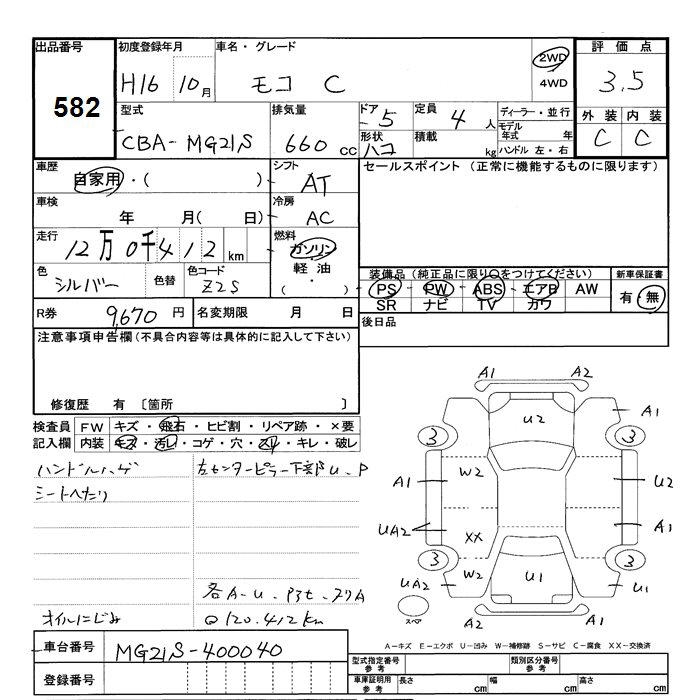 出品番号 初度登録年月 車名・グレード 評価点
582 H16 10月 モコ C 2WD 4WD 3.5
型式 排気量 ドア 5 定員 4 人 ディーラー・並行 外装 内装
CBA-MG21S 660 cc 形状 ハコ 積載 kg モデル年式 年 ハンドル 左・右 C C
車歴 自家用・( ) シフト AT セールスポイント (正常に機能するものに限ります)
車検 年 月( 日) 冷房 AC
走行 12万0千412 km 燃料 ガソリン
色 シルバー 色替 色コード Z2S 軽油・( ) 装備品 (純正品に限り○をつけてください) 新車保証書
PS PW ABS エアB AW 有・無
SR ナビ TV カワ
R券 9,670 円 名変期限 月 日 後日品
注意事項申告欄 (不具合内容等は具体的に記入して下さい)
修復歴 有 〔箇所 〕
検査員 FW キズ・飛石・ヒビ割・リペア跡・×要
記入欄 内装 キズ・汚レ・コゲ・穴・スレ・キレ・破レ
ハンドルハゲ 左センターピラー下部U、P
シートへたり
各A-U、
オイルにじみ 120.412km
A1 A2
U2 A1
3 3
W2
A1 U2
UA2 A1
XX
3 3
UA2 W2 U1 U1
スペア
A2 A1
A-キズ E-エクボ U-凹み W-補修跡 S-サビ C-腐食 XX-交換済
車台番号 MG21S-400040 型式指定番号 参考 類別区分番号 参考
登録番号 車庫証明用 参考 長さ cm 幅 cm 高さ cm